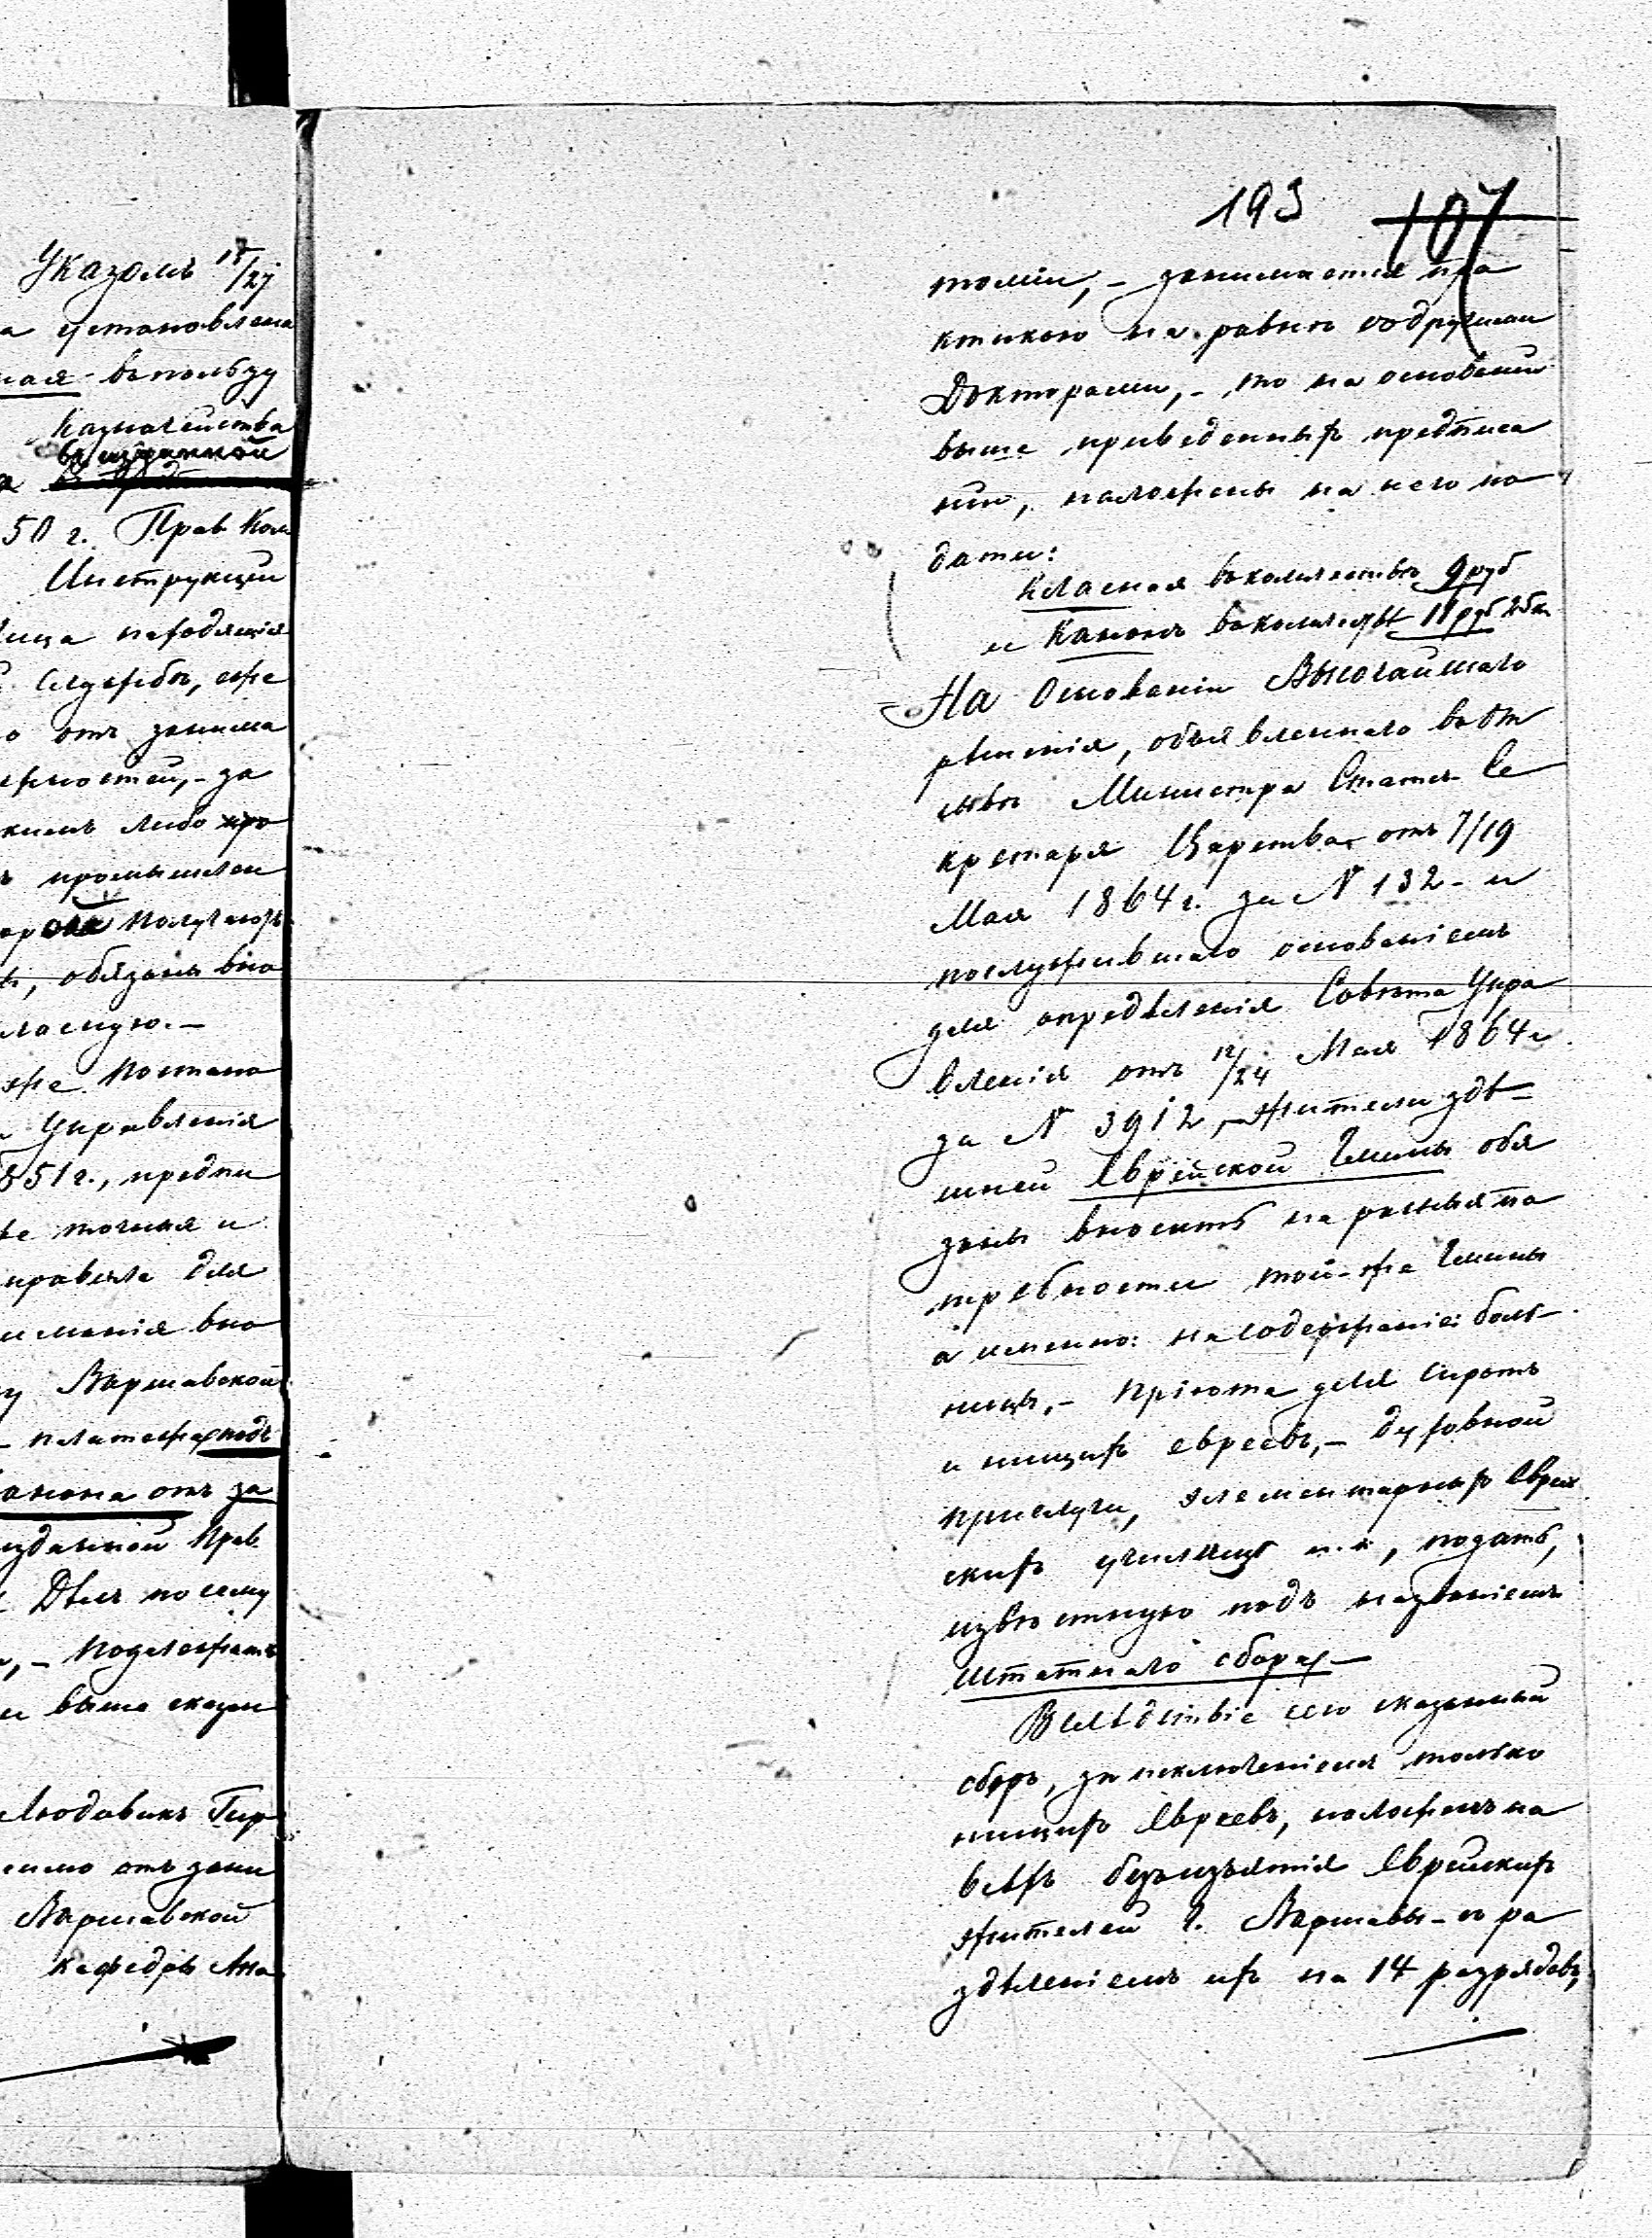 Указомъ 18/27
а установлена
ная въ пользу
Казначейства
въ изданной
50 г. Прав Ком
Инструкціи
лица находящіяся
службѣ, не
о отъ занима
жностей, - за
кимъ либо
ъ промышлен
получаютъ
ъ, обязаны вно
ласную. -
же Постано
Управленія
851 г., предпи
точныя и
правила для
иманія вно
у Варшавской
платежа подъ
анона отъ за
изданной Прав.
Дѣлъ по сему
, - подлежатъ
и выше сказан
Людовикъ Гир
симо отъ зани
Варшавской
кафедрѣ Ана
193 107
томіи, - занимается пра
ктикою на равнѣ съ другими
Докторами, - то на основаніи
выше приведенныхъ предписа
ній, наложены на него по
дати:
Класная въ количествѣ 9 руб
и Канонъ въ количествѣ 11 руб 25 к.
На Основаніи Высочайшаго
рѣшенія, объявленнаго въ От
зывѣ Министра Статсъ Се
кретаря Царства отъ 7/19
Мая 1864 г. за N 132 - и
послужившаго основаніемъ
для опредѣленія Совѣта Упра
вленія отъ 12/24 Мая 1864 г.
за N 3912, - Жители здѣ-
шней Еврейской Гмины обя
заны вносить на разныя по
требности той-же Гмины
а именно: на содержаніе: боль-
ницъ, - Пріюта для сиротъ
и нищихъ евреевъ, - духовной
прислуги, элементарныхъ Еврей
скихъ училищъ и. т., подать,
извѣстную подъ названіемъ
штатнаго сбора. -
Вслѣдствіе сего сказанный
сборъ, за исключеніемъ только
нищихъ Евреевъ, положенъ на
всѣхъ безъ изъятія Еврейскихъ
жителей г. Варшавы - съ ра
здѣленіемъ ихъ на 14 разрядовъ,